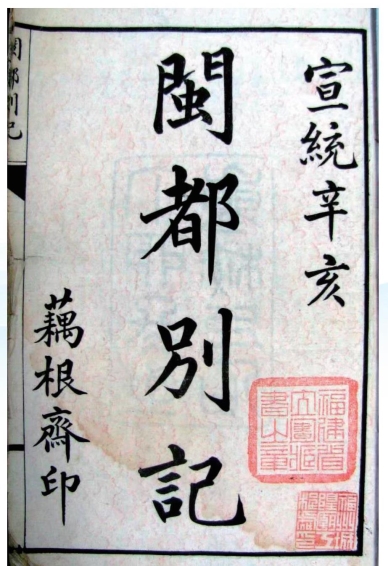 宣統辛亥
閩都別記
藕根齋印
閩都別記